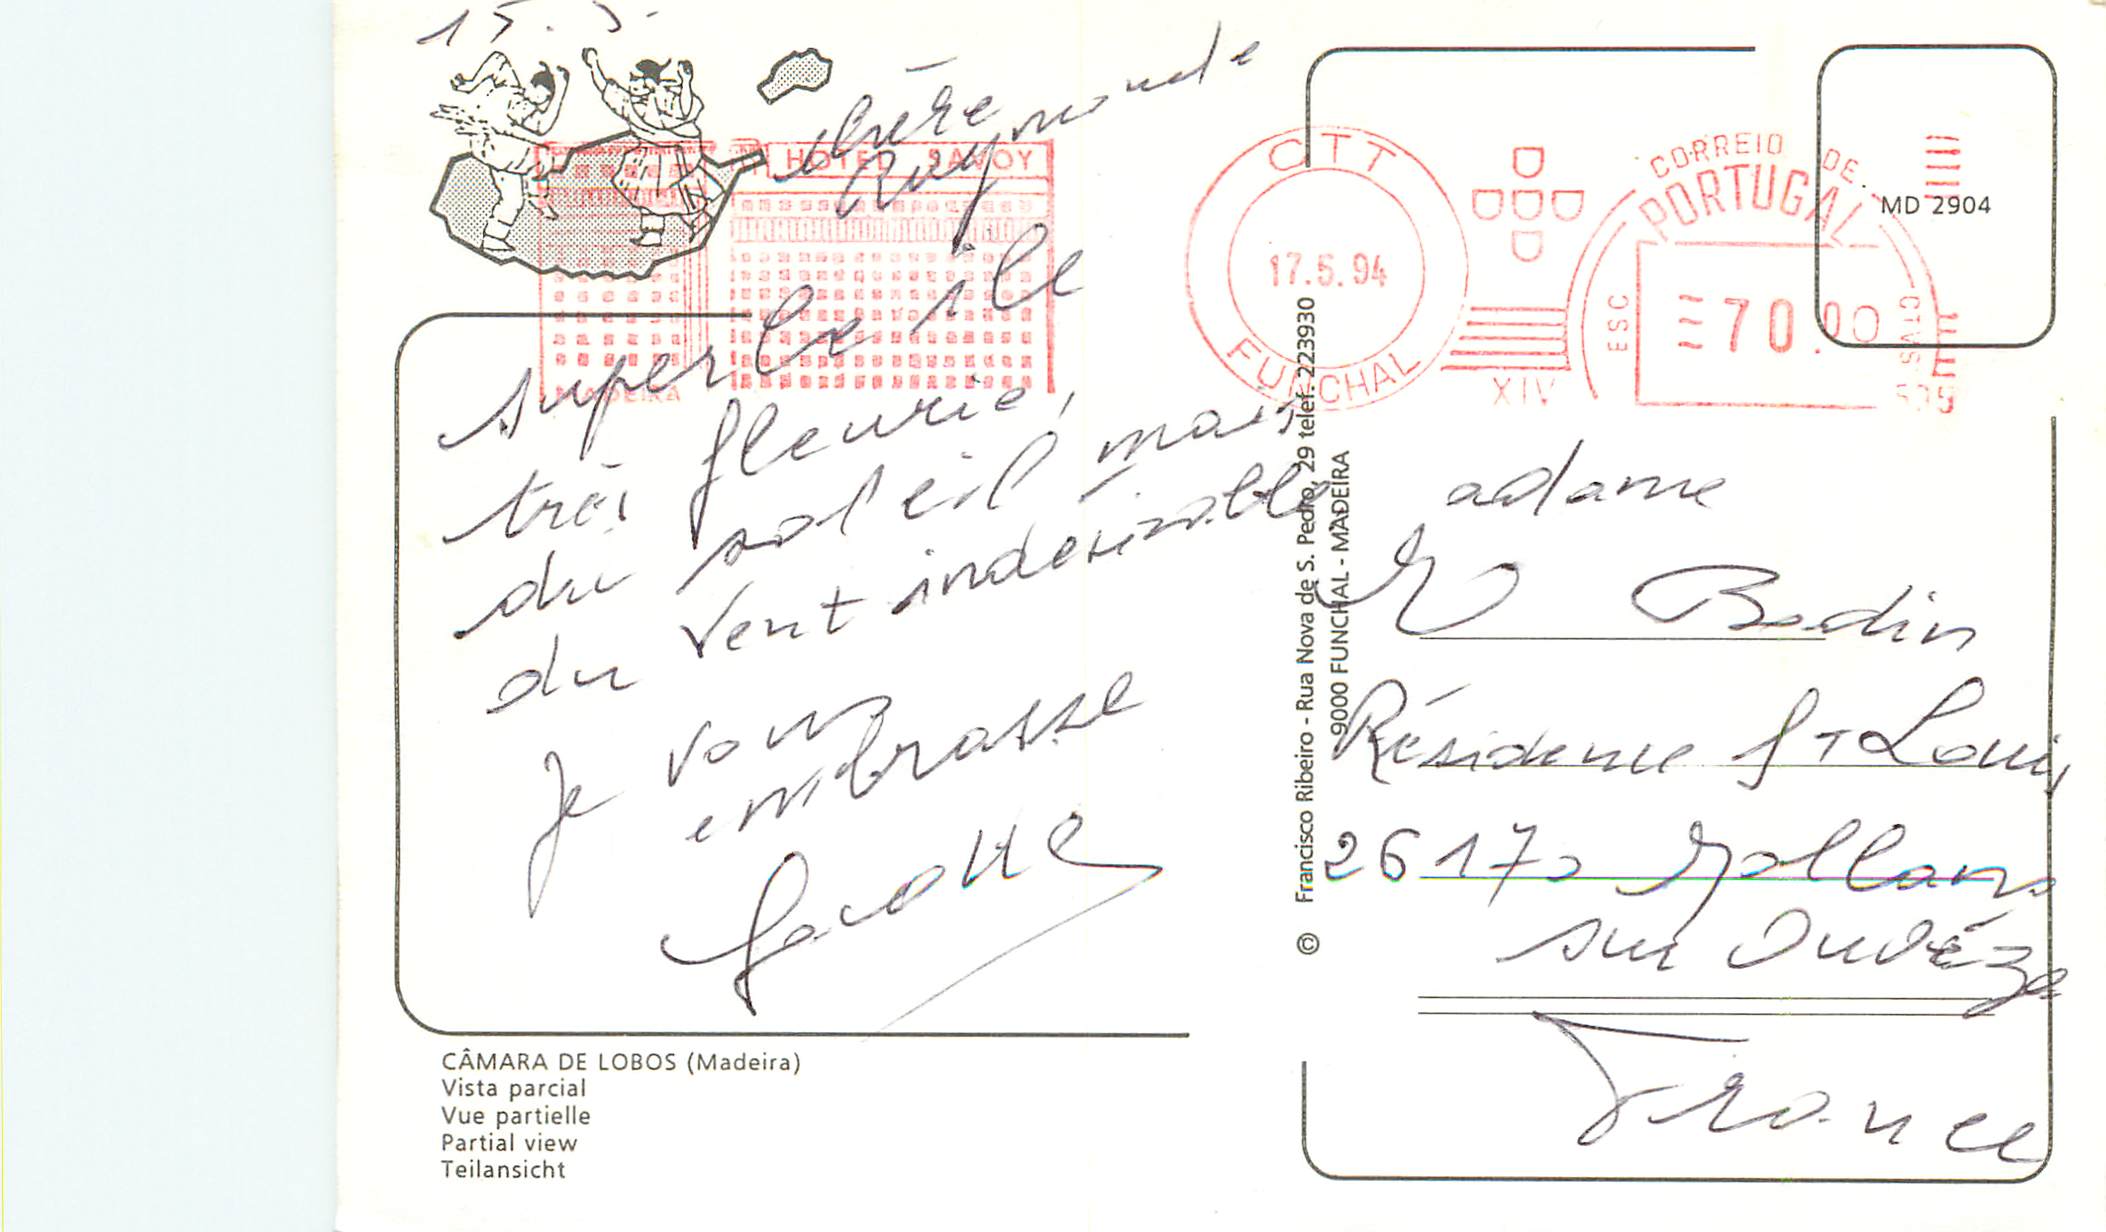 15.5.
Chère
Raymonde
superbe île
très fleurie,
du soleil, mais
du vent indésirable
Je vous
embrasse
CÂMARA DE LOBOS (Madeira)
Vista parcial
Vue partielle
Partial view
Teilansicht
HOTEL SAVOY
MADEIRA
CTT
17.5.94
FUNCHAL
XIV
CORREIO DE
PORTUGAL
ESC
70.00
CTVS
MD 2904
© Francisco Ribeiro - Rua Nova de S. Pedro, 29 telef. 223930
9000 FUNCHAL - MADEIRA
Madame
Bodin
Résidence St Louis
26170 Mollans
sur Ouvéze
France